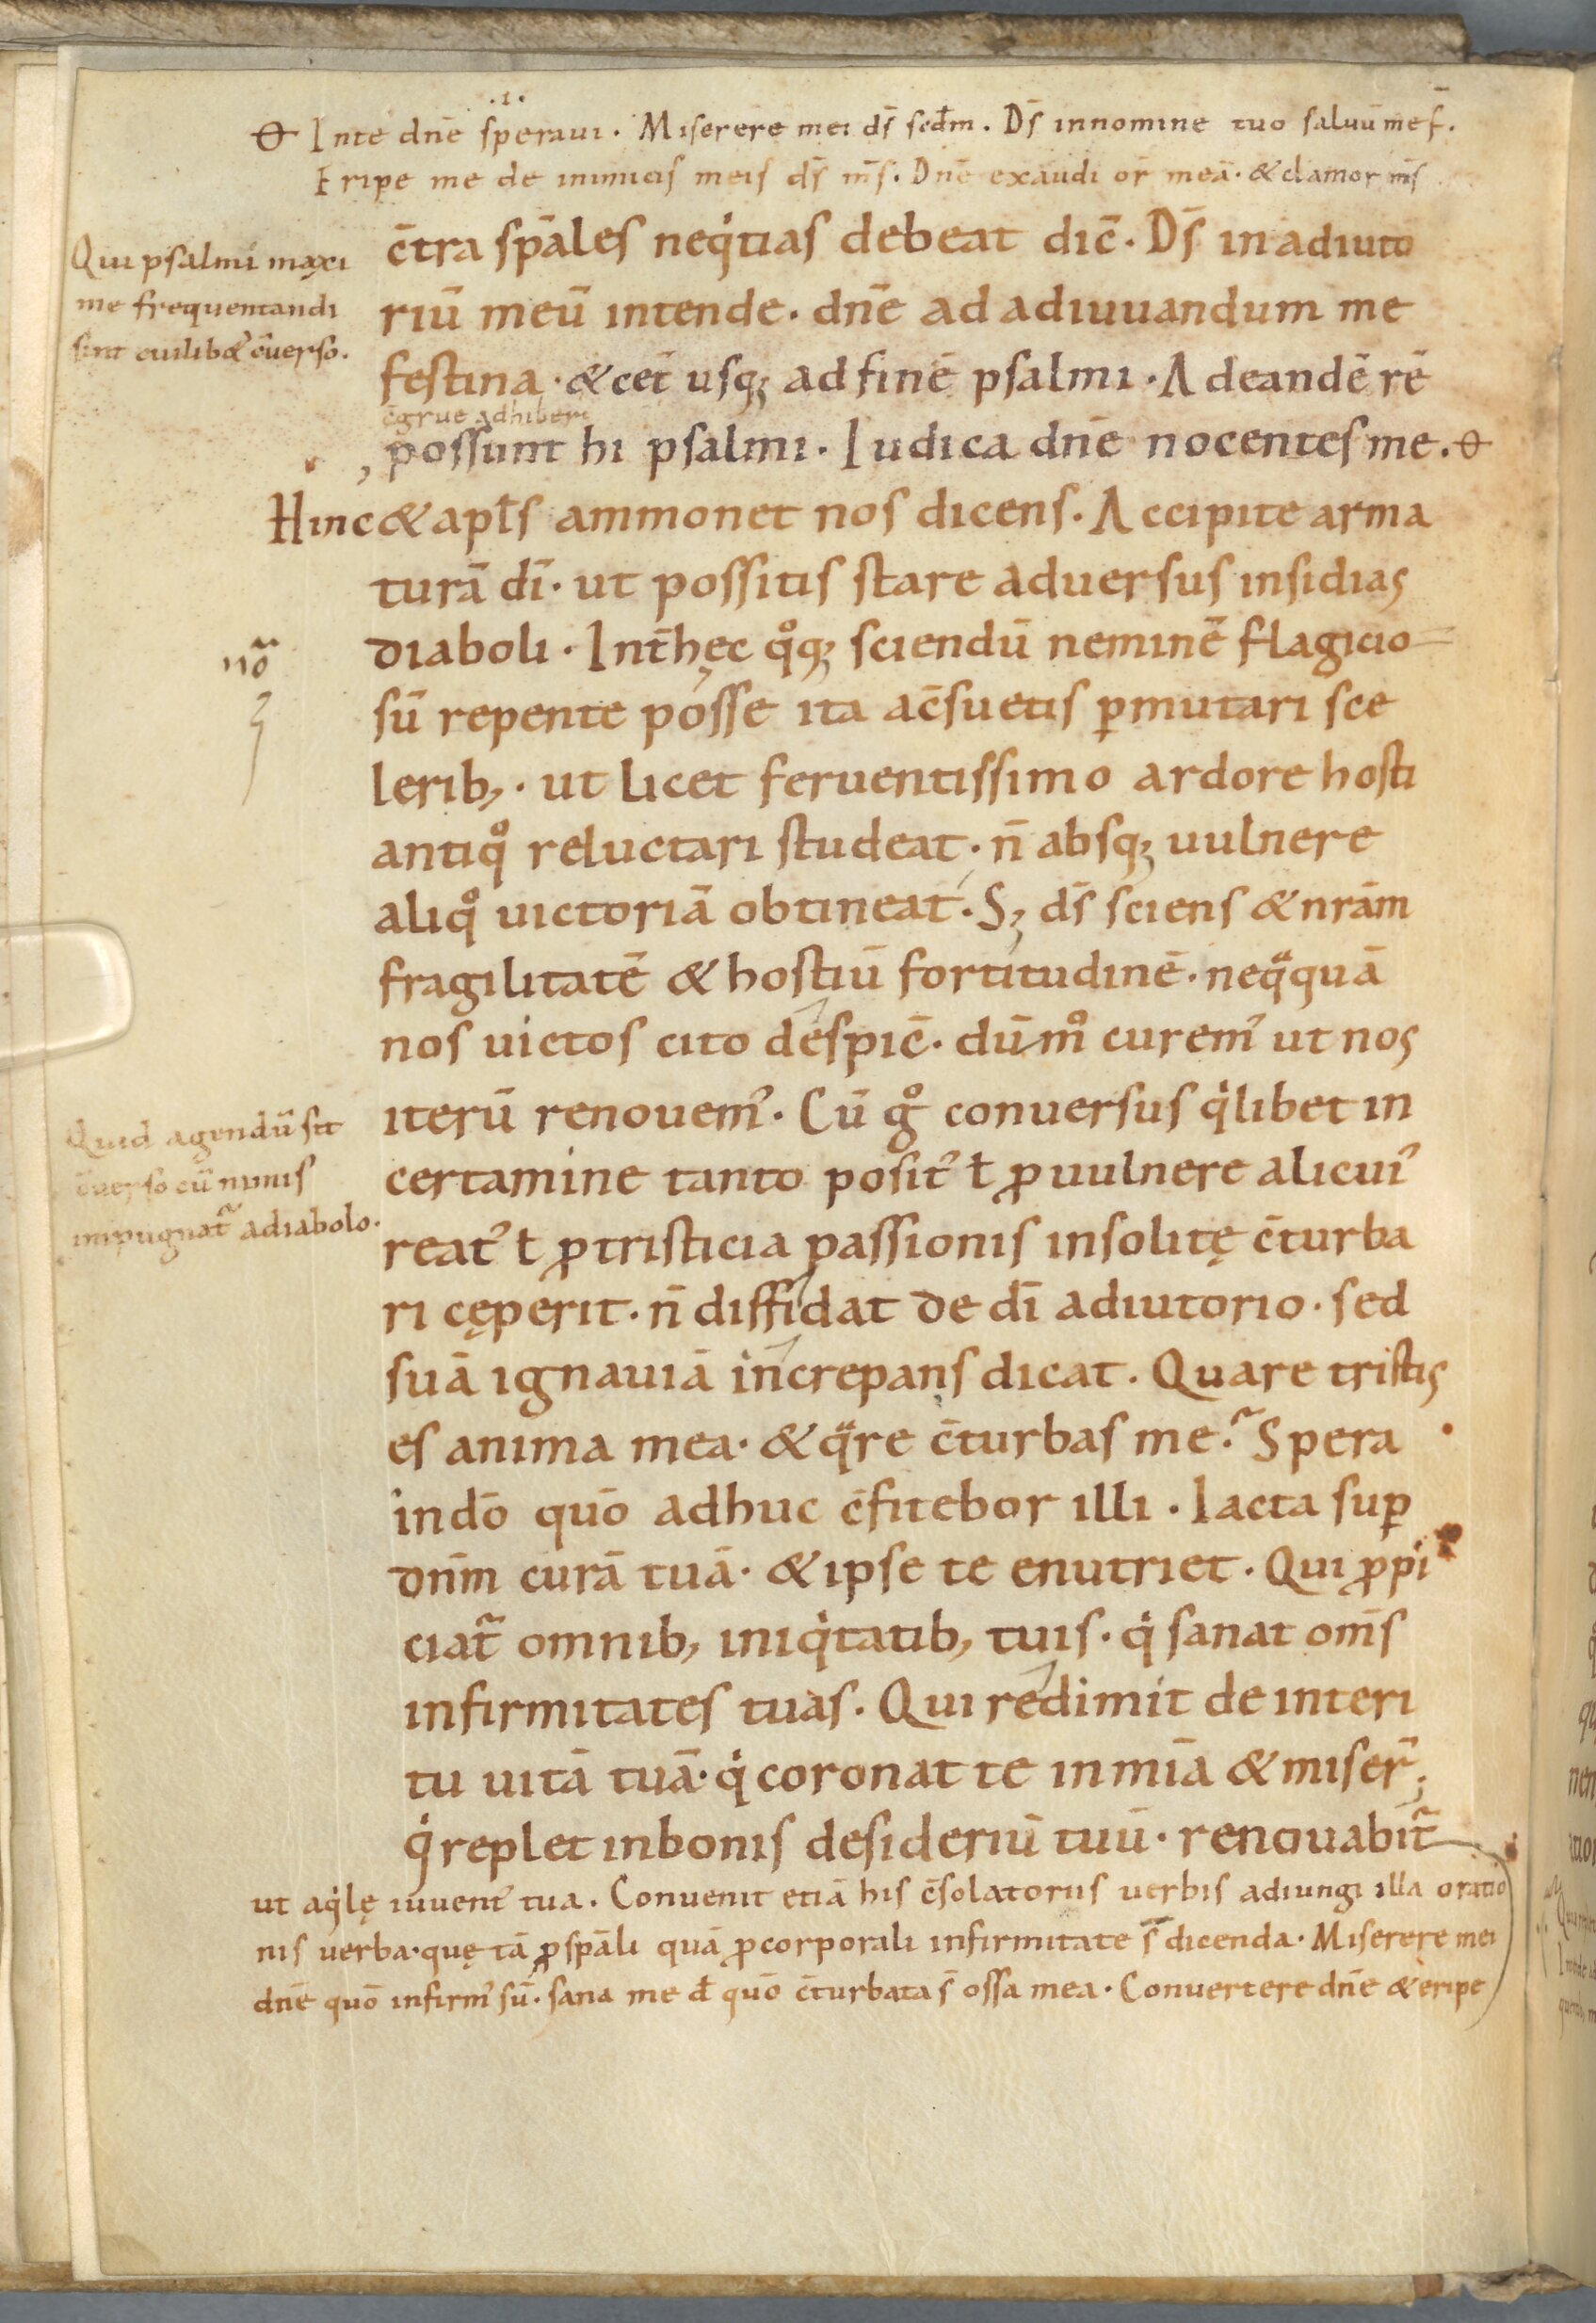 .i.
Inte dn̄e speraui. Miserere mei ds̄ scd̄m. Ds̄ innomine tuo saluū me f̄.
Eripe me de inimicis meis ds̄ m̄s. Dn̄e exaudi or̄ meā. & clamor m̄s
Qui psalmi maxi
me frequentandi
sint cuilib& c̄uerso.
c̄tra sp̄ales neqͥtias debeat dic̄. Ds̄ in adiuto
riū meū intende. dn̄e ad adiuuandum me
festina. & cet̄ usq; ad finē psalmi. Ad eandē rē
c̄grue adhiberi
possunt hi psalmi. Iudica dn̄e nocentes me.
Hinc & apl̄s ammonet nos dicens. Accipite arma
turā dī. ut possitis stare aduersus insidias
diaboli. Int̄ hęc qͦq; sciendū neminē flagicio
nō
sū repente posse ita ac̄suetis ꝑmutari sce
lerib,. ut licet feruentissimo ardore hosti
antiqͦ reluctari studeat. n̄ absq; uulnere
aliqͦ uictoriā obtineat. S; ds̄ sciens & nrām
fragilitatē & hostiū fortitudinē. neqͣquā
nos uictos cito despic̄. dūmͦ curem᾽ ut nos
iterū renouem᾽. Cū gͦ conuersus qͥlibet in
Quid agendū sit
c̄uerso cū nimis
impugnat᷑ a diabolo.
certamine tanto posit᾽ ł ꝓ uulnere alicui᾽
reat᾽ ł ꝓ tristicia passionis insolitę c̄turba
ri cęperit. n̄ diffidat de dī adiutorio. sed
suā ignauiā increpans dicat. Quare tristis
es anima mea. & qͣre c̄turbas me. Spera
in dō quō adhuc c̄fitebor illi. Iacta suꝑ
dn̄m curā tuā. & ipse te enutriet. Qui ꝓpi
ciat᷑ omnib, iniqͥtatib, tuis. qͥ sanat om̄s
infirmitates tuas. Qui redimit de interi
tu uitā tuā. qͥ coronat te in mīa & miser̄;
qͥ replet in bonis desideriū tuū. renouabit᷑
ut aqͥlę iuuent᾽ tua. Conuenit etiā his c̄solatoriis uerbis adiungi illa oratio
nis uerba. quę tā ꝓ sp̄ali quā ꝓ corporali infirmitate s̄ dicenda. Miserere mei
dn̄e quō infirm᾽ sū. sana me đ quō c̄turbata s̄ ossa mea. Conuertere dn̄e & eripe